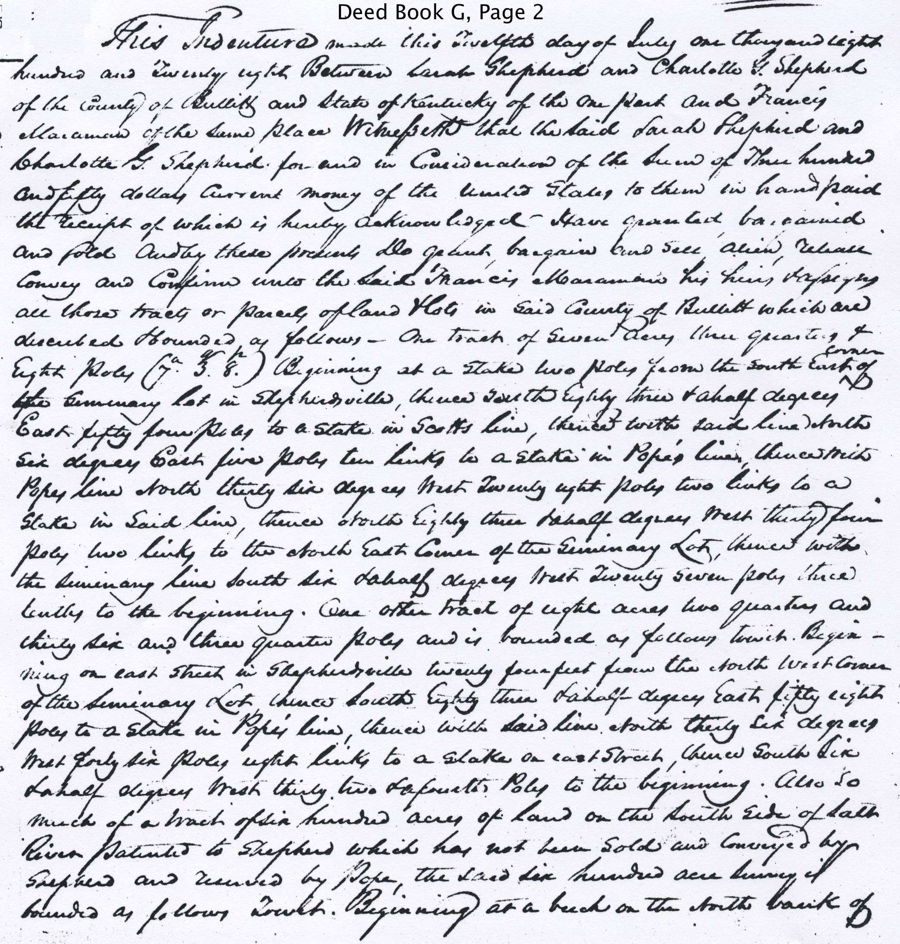 Deed Book G, Page 2
This Indenture made this Twelfth day of July one thousand eight
hundred and Twenty eight Between Sarah Shepherd and Charlotte G. Shepherd
of the County of Bullitt and State of Kentucky of the one part and Francis
Maraman of the same place Witnesseth that the said Sarah Shepherd and
Charlotte G Shepherd for and in Consideration of the Sum of Three hundred
and fifty dollars Current money of the United States to them in hand paid
the receipt of which is hereby acknowledged Have granted, bargained
and sold And by these presents Do grant, bargain and sell, alien, release
Convey and Confirm unto the Said Francis Maraman his heirs & assigns
all those tracts or parcels of land & Lots in Said County of Bullitt which are
described & bounded, as follows – One tract of Seven acres three quarters &
Eight Poles (7a. 3q. 8p.) Beginning at a Stake two poles from the South East corner of
the Siminary lot in Shepherdsville, thence South Eighty three & a half degrees
East fifty four poles to a Stake in Scotts line, thence with said line North
Six degrees East five poles ten links to a Stake in Pope's line, thence with
Popes line North thirty six degrees West Twenty eight poles two links to a
Stake in Said line, thence North Eighty three & a half degrees West thirty four
poles two links to the North East Corner of the Siminary Lot, thence with
the Siminary line South six & a half degrees West Twenty Seven poles three
tenths to the beginning. One other tract of eight acres two quarters and
thirty six and three quarter poles and is bounded as follows towit. Begin-
ning on east Street in Shepherdsville twenty four feet from the North West Corner
of the Siminary Lot, thence South Eighty three & a half degrees East fifty eight
poles to a Stake in Pope's line, thence with said line North thirty Six degrees
West forty six poles eight links to a Stake on east Street, thence South Six
& a half degrees West thirty two & a fourth Poles to the beginning. Also So
much of a tract of six hundred acres of Land on the South Side of Salt
River patented to Shepherd which has not been Sold and Conveyed by
Shepherd and recovered by Pope, the said six hundred acre Survey is
bounded as follows Towit. Beginning at a beech on the North bank of